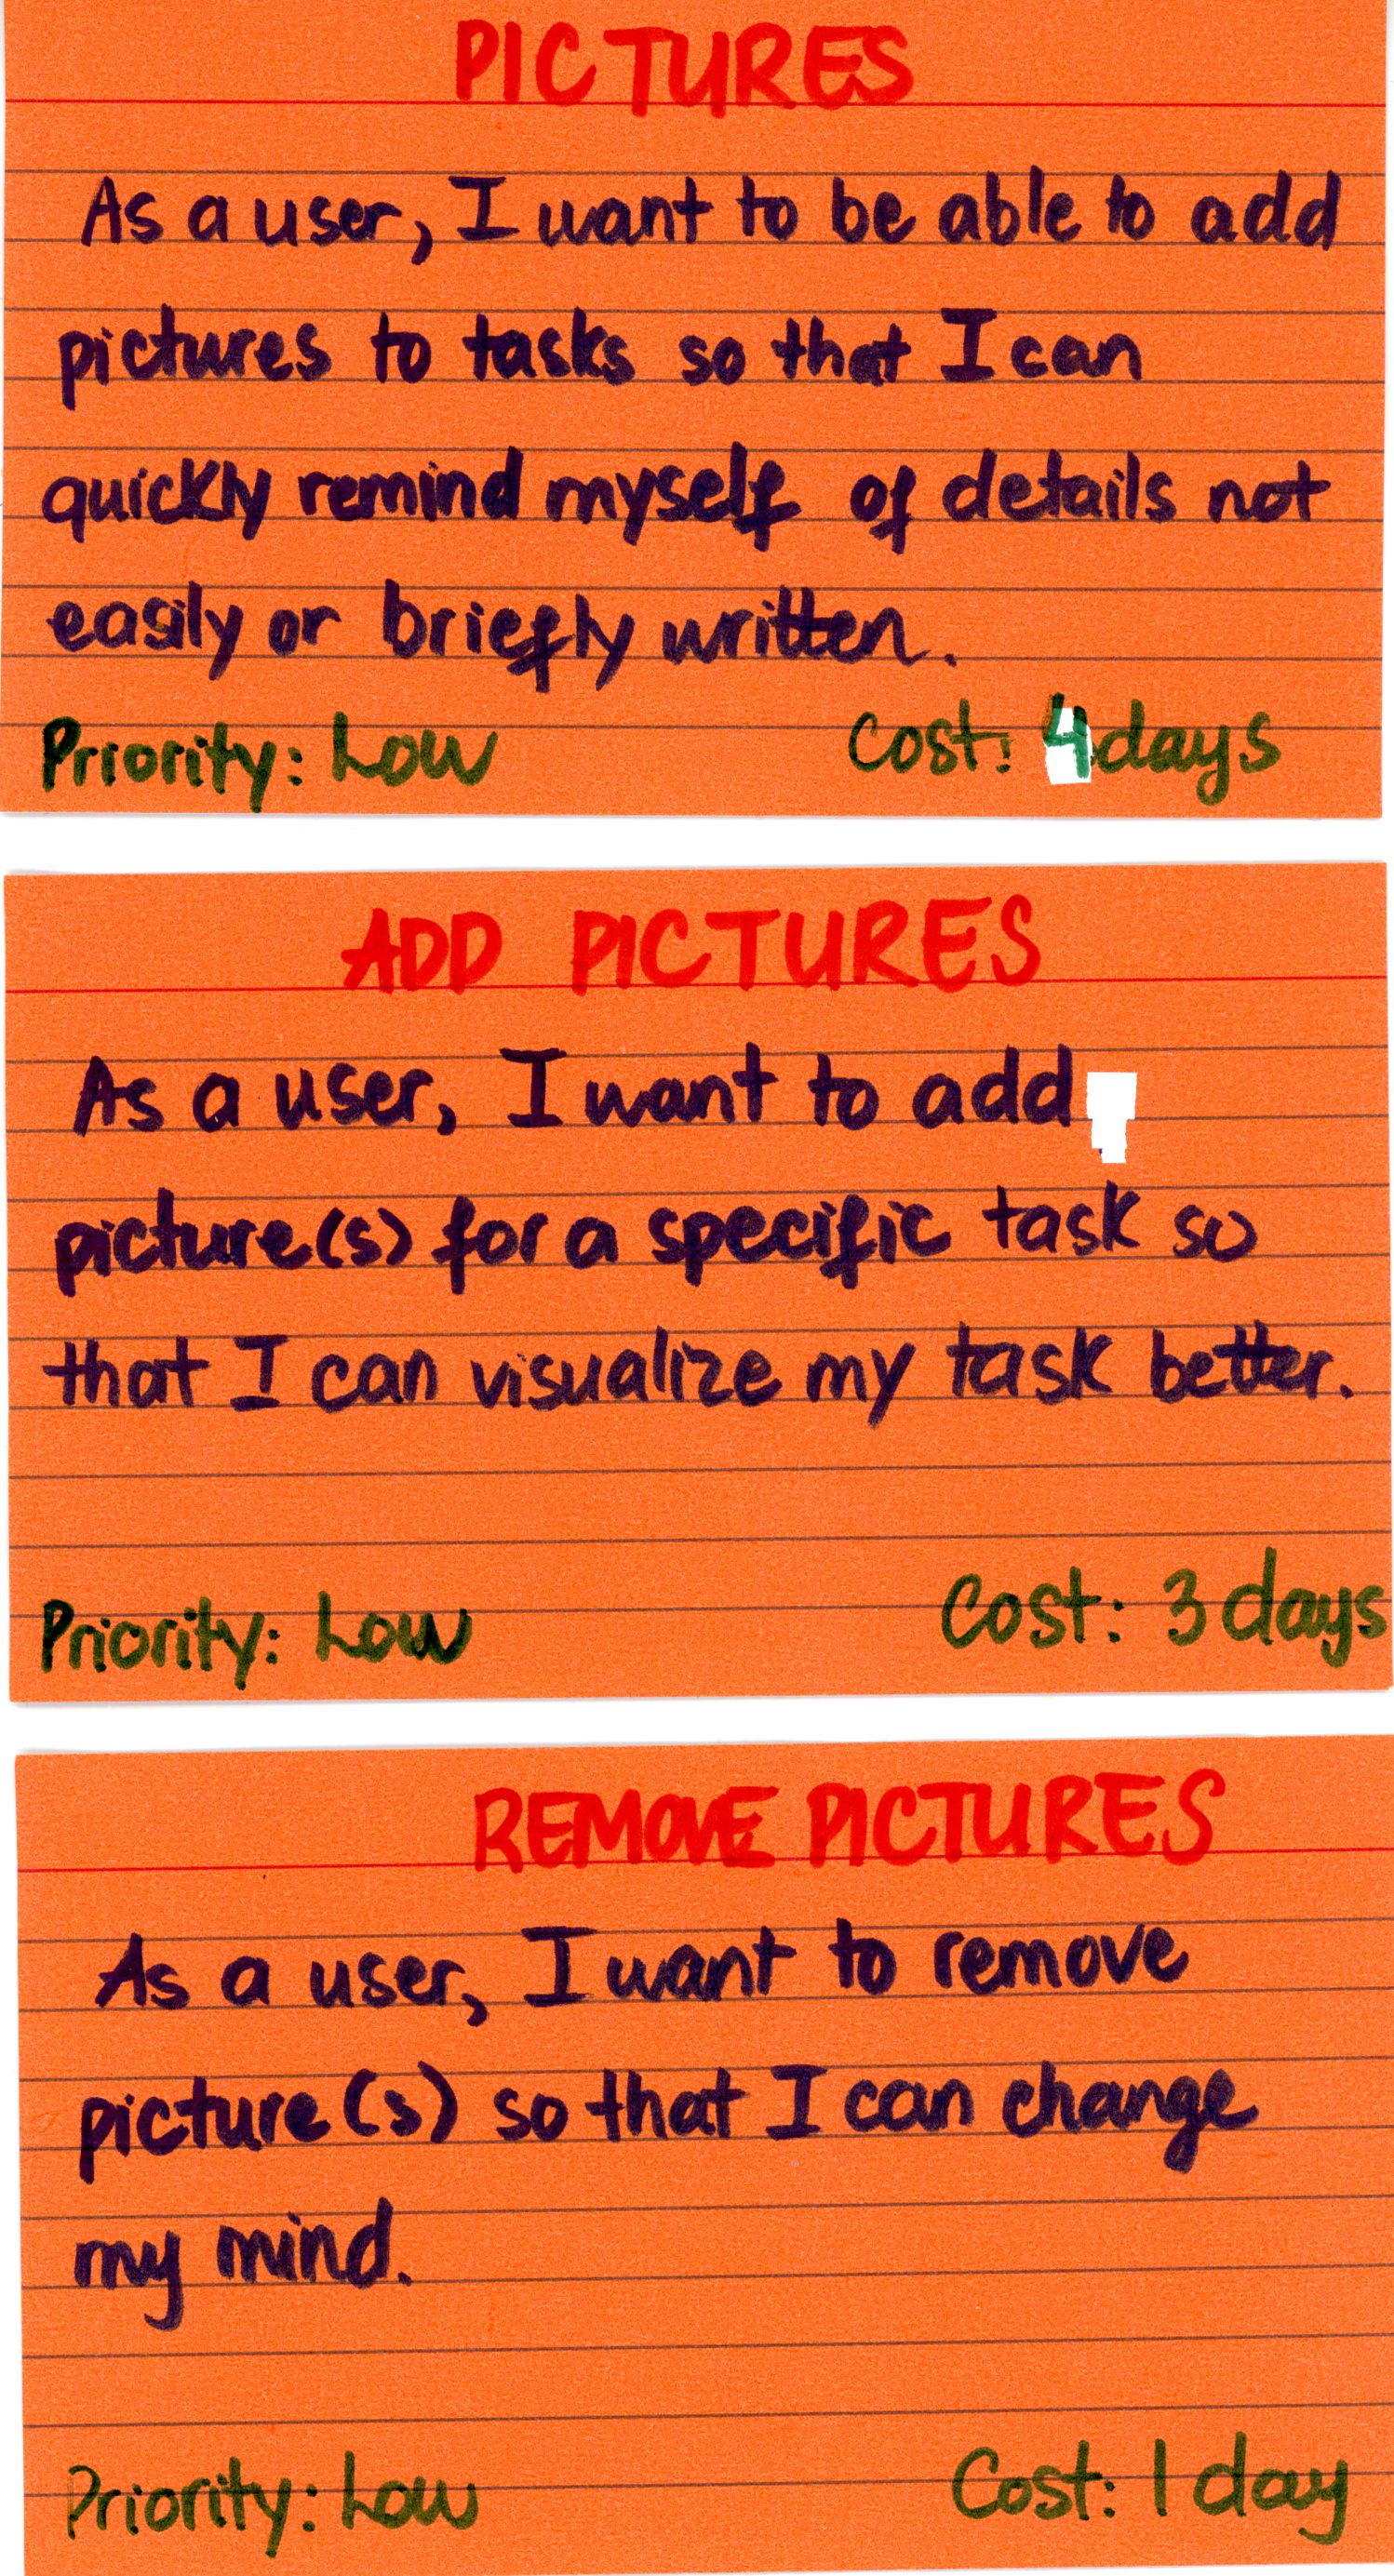 PICTURES
As a user, I want to be able to add
pictures to tasks so that I can
quickly remind myself of details not
easily or briefly written.
Priority: Low Cost: 4 days
ADD PICTURES
As a user, I want to add
picture(s) for a specific task so
that I can visualize my task better.
Priority: Low Cost: 3 days
REMOVE PICTURES
As a user, I want to remove
picture(s) so that I can change
my mind.
Priority: Low Cost: 1 day